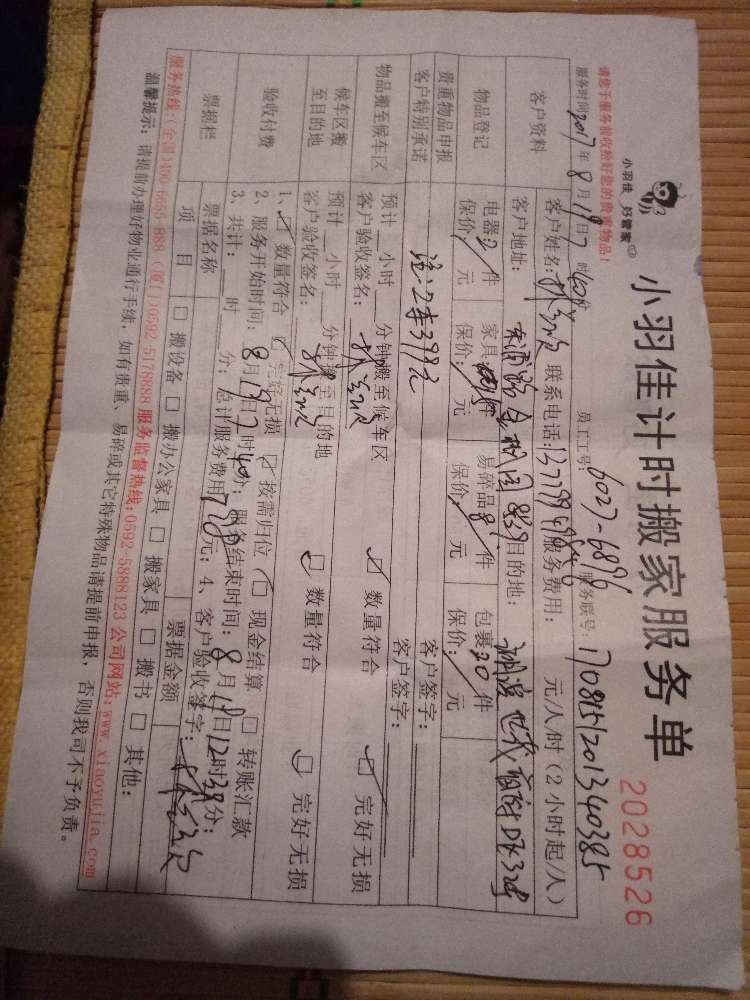 小羽佳 好管家
小羽佳计时搬家服务单
2028526
请您于服务前收拾好您的贵重物品!
员工工号: 6027-6896 服务联号: 1708151201340385
服务时间2017年8月19日7时40分
客户资料
客户姓名: 联系电话: 服务费用: 元/人时(2小时起/人)
客户地址: 目的地:
物品登记
电器2件 家具 件 易碎品8件 包裹30件
保价/元 保价/元 保价/元 保价/元
贵重物品申报
客户签字:
客户特别承诺
客户签字:
物品搬至候车区
预计 小时 分钟搬至候车区 ☑ 数量符合 ☑ 完好无损
客户验收签名:
候车区搬至目的地
预计 小时 分钟搬至目的地 ☑ 数量符合 ☑ 完好无损
客户验收签名:
验收付费
1、☑ 数量符合 ☑ 完好无损 ☑ 按需归位 ☑ 现金结算 □ 转账汇款
2、服务开始时间: 8月19日7时40分; 服务结束时间: 8月19日12时38分;
3、共计: 时 分; 总计服务费用 728元; 4、客户验收签字:
票据栏
票据名称 票据金额
项目 □ 搬设备 □ 搬办公家具 □ 搬家具 □ 搬书 □ 其他:
服务热线:(全国)400-6655-888 (厦门)0592-5178888 服务监督热线:0592-5888123 公司网站:www.xiaoyujia.com
温馨提示: 请提前办理好物业通行手续, 如有贵重、易碎或其它特殊物品请提前申报, 否则我司不予负责。